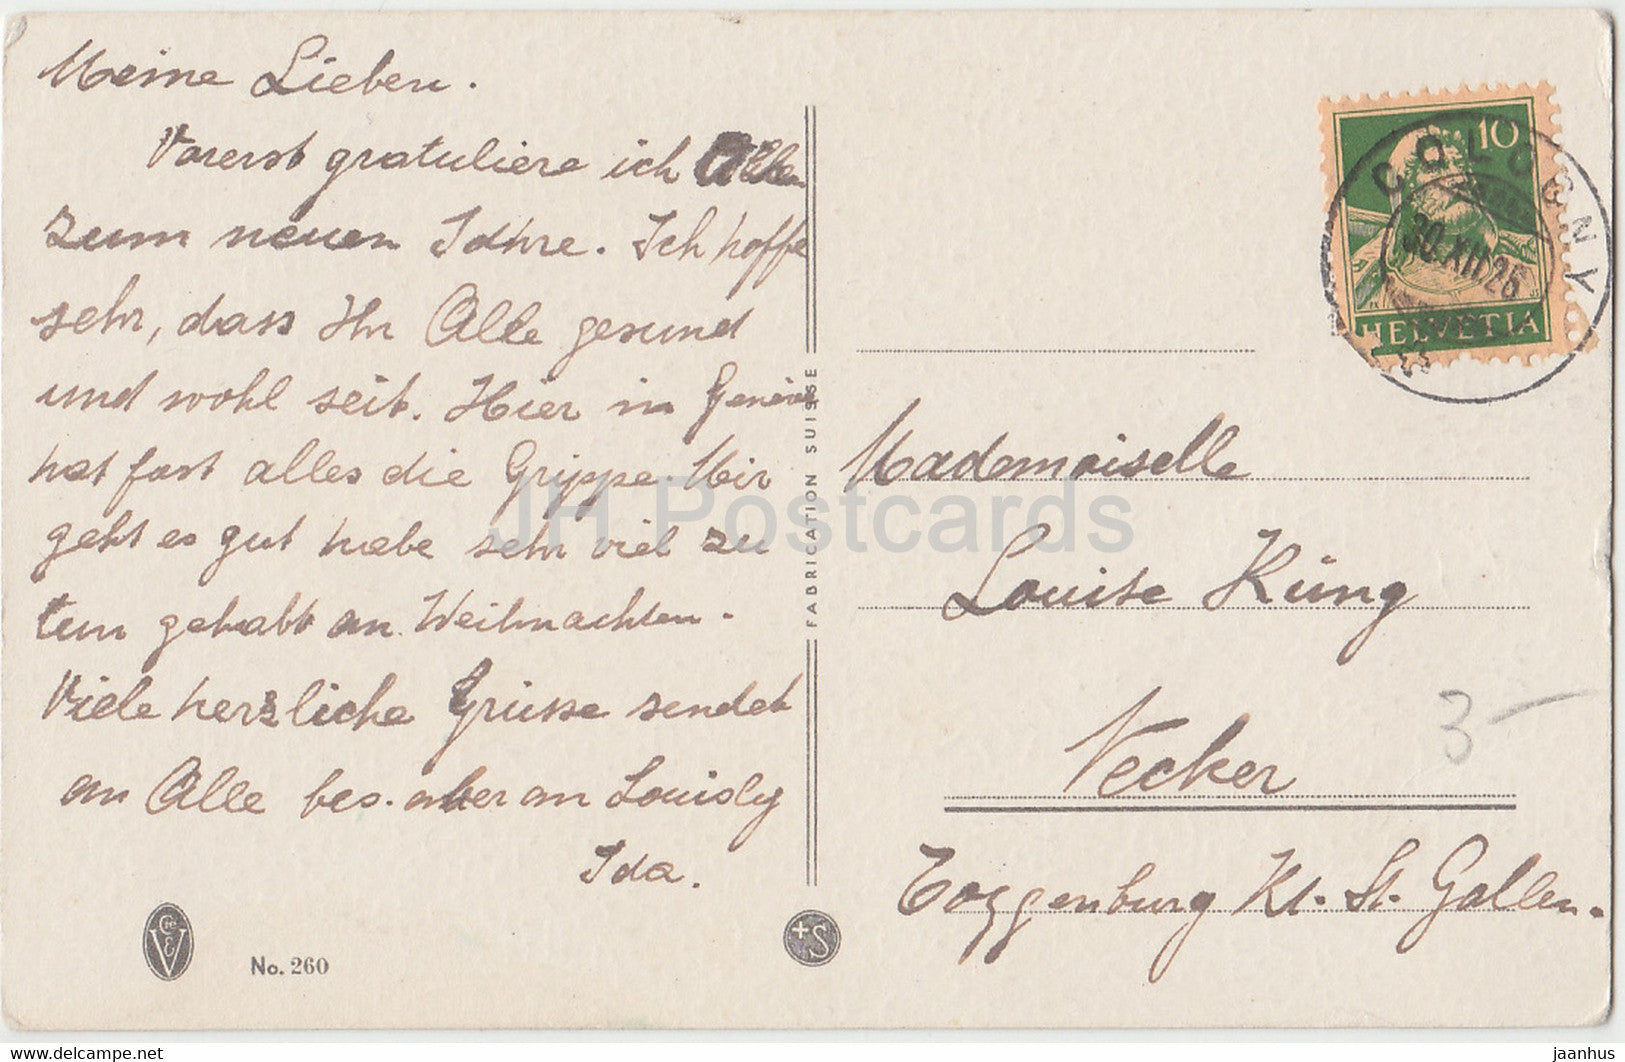 Meine Lieben.
Vorerst gratuliere ich Allen
zum neuen Jahre. Ich hoffe
sehr, dass Ihr Alle gesund
und wohl seit. Hier in Genève
hat fast alles die Grippe. Mir
geht es gut habe sehr viel zu
tun gehabt an Weihnachten.
Viele herzliche Grüsse sendet
an Alle bes. aber an Louisly
Ida.
No. 260
FABRICATION SUISSE
+S
10
HELVETIA
COLOGNY
30.XII.25
Mademoiselle
Louise Küng
Necker
Toggenburg Kt. St. Gallen.
3-
JH Postcards
www.delcampe.net
jaanhus